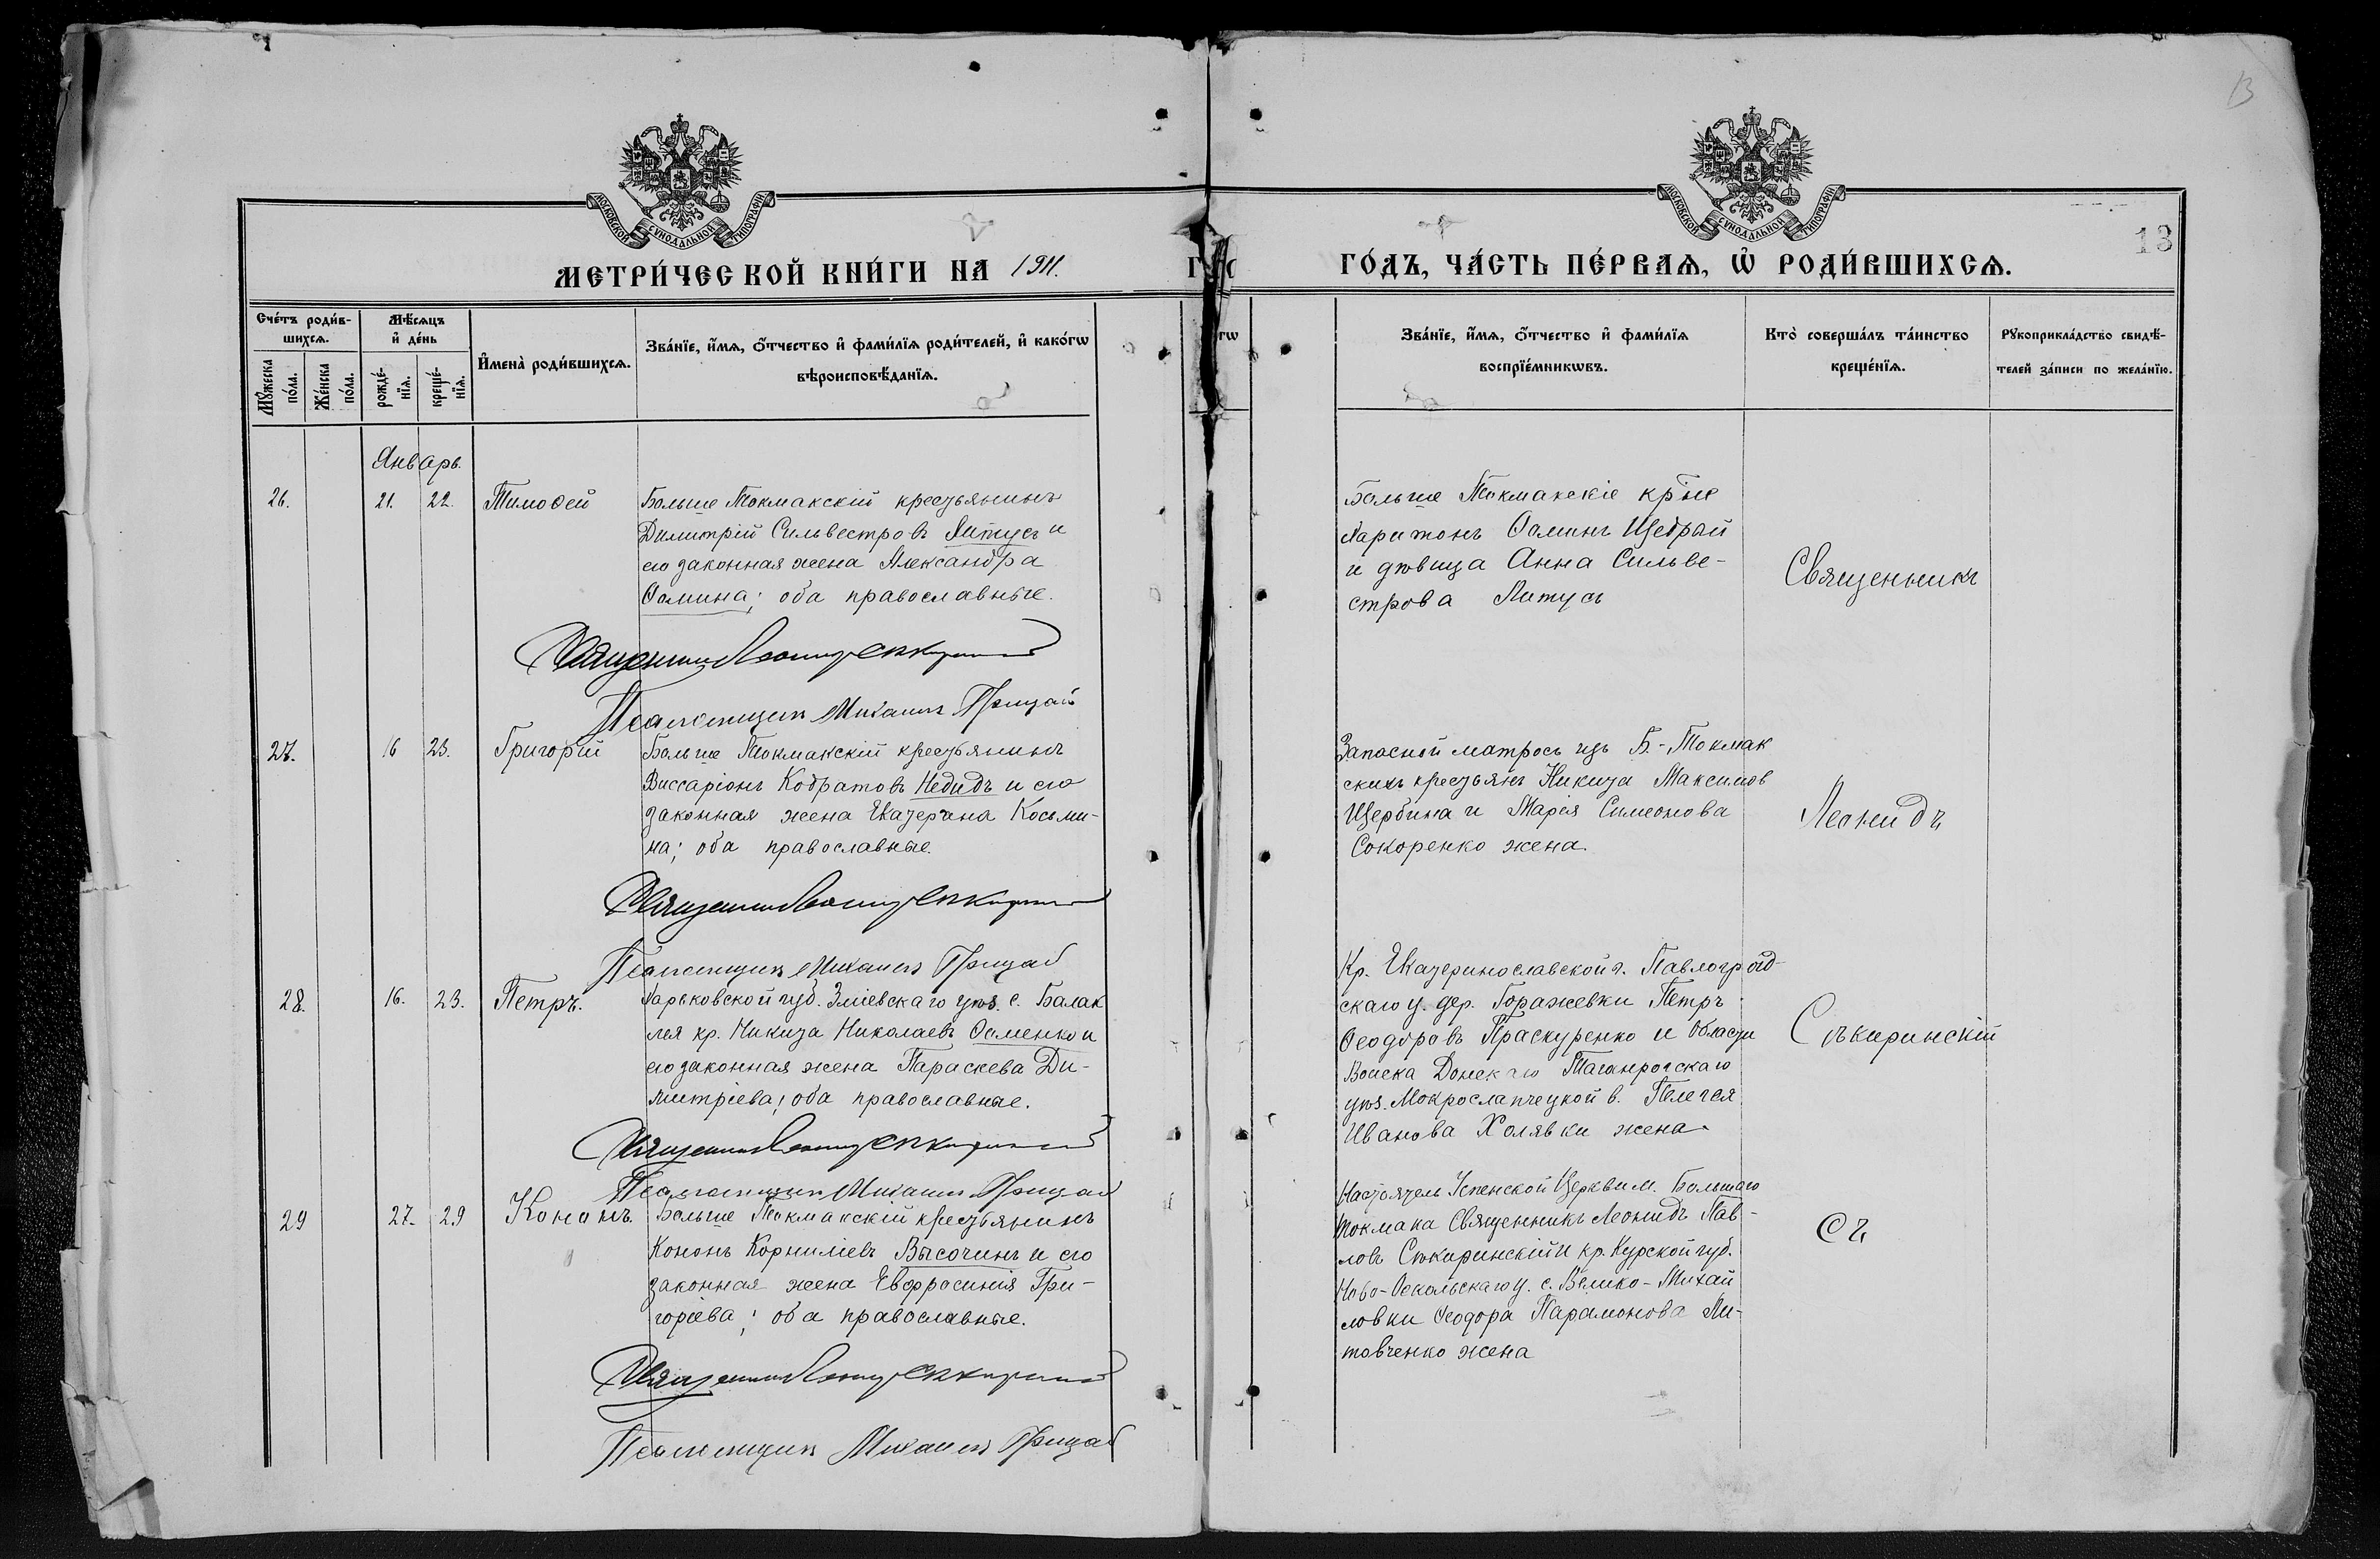 13
МОСКОВСКОЙ СѴНОДАЛЬНОЙ ТИПОГРАФІИ
МОСКОВСКОЙ СѴНОДАЛЬНОЙ ТИПОГРАФІИ
13
МЕТРИ́ЧЕСКОЙ КНИ́ГИ НА 1911.
ГО́ДЪ, ЧА́СТЬ ПЕ́РВАѦ, Ѡ҆ РОДИ́ВШИХСѦ.
Сче́тъ роди́в-
шихсѧ.
Мꙋ́жеска по́ла.
Же́нска по́ла.
Мѣ́сѧцъ
и҆ де́нь
рожде́-
нїѧ.
креще́-
нїѧ.
И҆мена̀ роди́вшихсѧ.
Зва́нїе, и҆́мѧ, ѻ҆́тчество и҆ фами́лїѧ роди́телей, и҆ како́гѡ
вѣроисповѣ́данїѧ.
Зва́нїе, и҆́мѧ, ѻ҆́тчество и҆ фами́лїѧ
воспрїе́мникѡвъ.
Кто̀ соверша́лъ та́инство
креще́нїѧ.
Рꙋкоприкла́дство свидѣ́-
телей за́писи по жела́нїю.
Январь.
26. 21. 22. Тимоѳей
Больше Токмакскій крестьянинъ
Димитрій Сильвестровъ Литусъ и
его законная жена Александра
Ѳомина; оба православные.
Священникъ Леонидъ Сѣкиринскій
Псаломщикъ Михаилъ Прицай
Больше Токмакскіе кр\u0027не
Харитонъ Ѳоминъ Щедрай
и дѣвица Анна Сильве-
строва Литусъ
Священникъ
27. 16 23. Григорій
Больше Токмакскій крестьянинъ
Виссаріонъ Кодратовъ Недидъ и его
законная жена Екатерина Косьми-
на; оба православные.
Священникъ Леонидъ Сѣкиринскій
Псаломщикъ Михаилъ Прицай
Запасной матросъ изъ Б.-Токмак
скихъ крестьянъ Никита Максимов
Щербина и Марія Симеонова
Сокоренко жена.
Леонидъ
28. 16. 23. Петръ.
Харьковской губ. Зміевскаго уѣз. с. Балак
лея кр. Никита Николаевъ Ѳоменко и
его законная жена Параскева Ди-
митріева; оба православные.
Священникъ Леонидъ Сѣкиринскій
Псаломщикъ Михаилъ Прицай
Кр. Екатеринославской г. Павлоград-
скаго у. дер. Горажевки Петръ
Ѳеодоровъ Праскуренко и Области
Войска Донскаго Таганрогскаго
уѣз. в. Пелагея
Иванова Холявки жена.
Сѣкиринскій
29 27. 29 Кононъ.
Больше Токмакскій крестьянинъ
Кононъ Корниліевъ Высочинъ и его
законная жена Евфросинія Гри-
горіева; оба православные.
Священникъ Леонидъ Сѣкиринскій
Псаломщикъ Михаилъ Прицай
Настоятель Успенской Церкви м. Большаго
Токмака Священникъ Леонидъ Пав-
ловъ Сѣкиринскій и кр. Курской губ.
Ново-Оскольскаго у. с. Велико-Михай
ловки Ѳеодора Парамонова Ли-
товченко жена
Съ